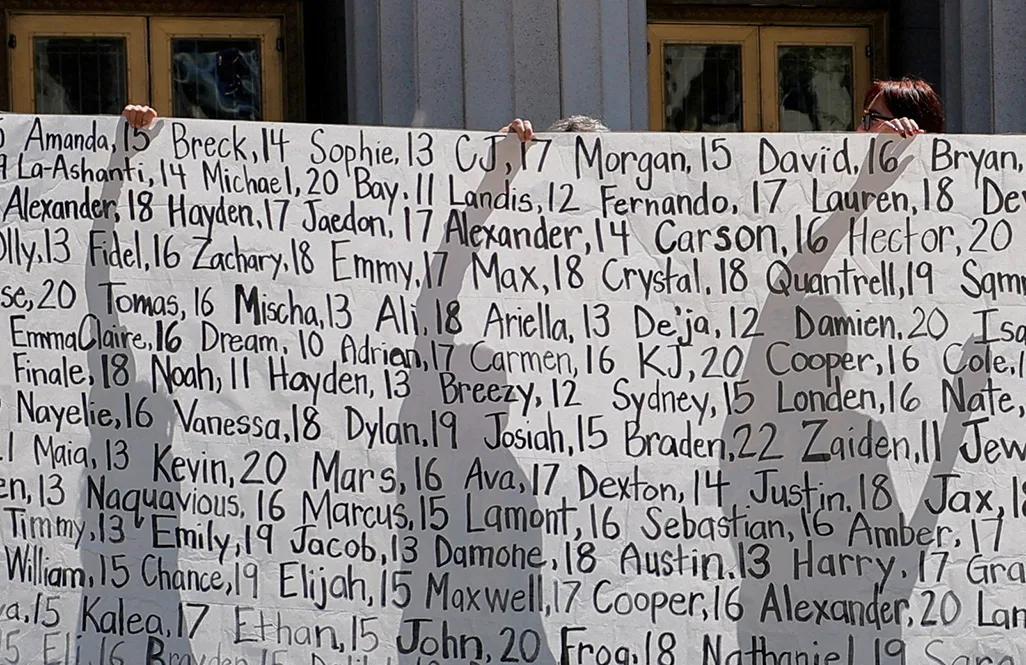 Amanda, 15 Breck, 14 Sophie, 13 CJ, 17 Morgan, 15 David, 16 Bryan,
La-Ashanti, 14 Michael, 20 Bay. 11 Landis, 12 Fernando, 17 Lauren, 18 Dev
Alexander, 18 Hayden, 17 Jaedon, 17 Alexander, 14 Carson, 16 Hector, 20
Olly, 13 Fidel, 16 Zachary, 18 Emmy, 17 Max, 18 Crystal, 18 Quantrell, 19 Sam
se, 20 Tomas, 16 Mischa, 13 Ali, 18 Ariella, 13 De'ja, 12 Damien, 20 Isa
EmmaClaire, 16 Dream, 10 Adrien, 17 Carmen, 16 KJ, 20 Cooper, 16 Cole,
Finale, 18 Noah, 11 Hayden, 13 Breezy, 12 Sydney, 15 Londen, 16 Nate,
Nayelie, 16 Vanessa, 18 Dylan, 19 Josiah, 15 Braden, 22 Zaiden, 11 Jew
Maia, 13 Kevin, 20 Mars, 16 Ava, 17 Dexton, 14 Justin, 18 Jax,
en, 13 Naquavious, 16 Marcus, 15 Lamont, 16 Sebastian, 16 Amber, 17
Timmy, 13 Emily, 19 Jacob, 13 Damone, 18 Austin, 13 Harry, 17 Gra
William, 15 Chance, 19 Elijah, 15 Maxwell, 17 Cooper, 16 Alexander, 20 Lan
a, 15 Kalea, 17 Ethan, 15 John, 20 Frog, 18 Nathaniel, 19
Eli, 16 Brayden, 15